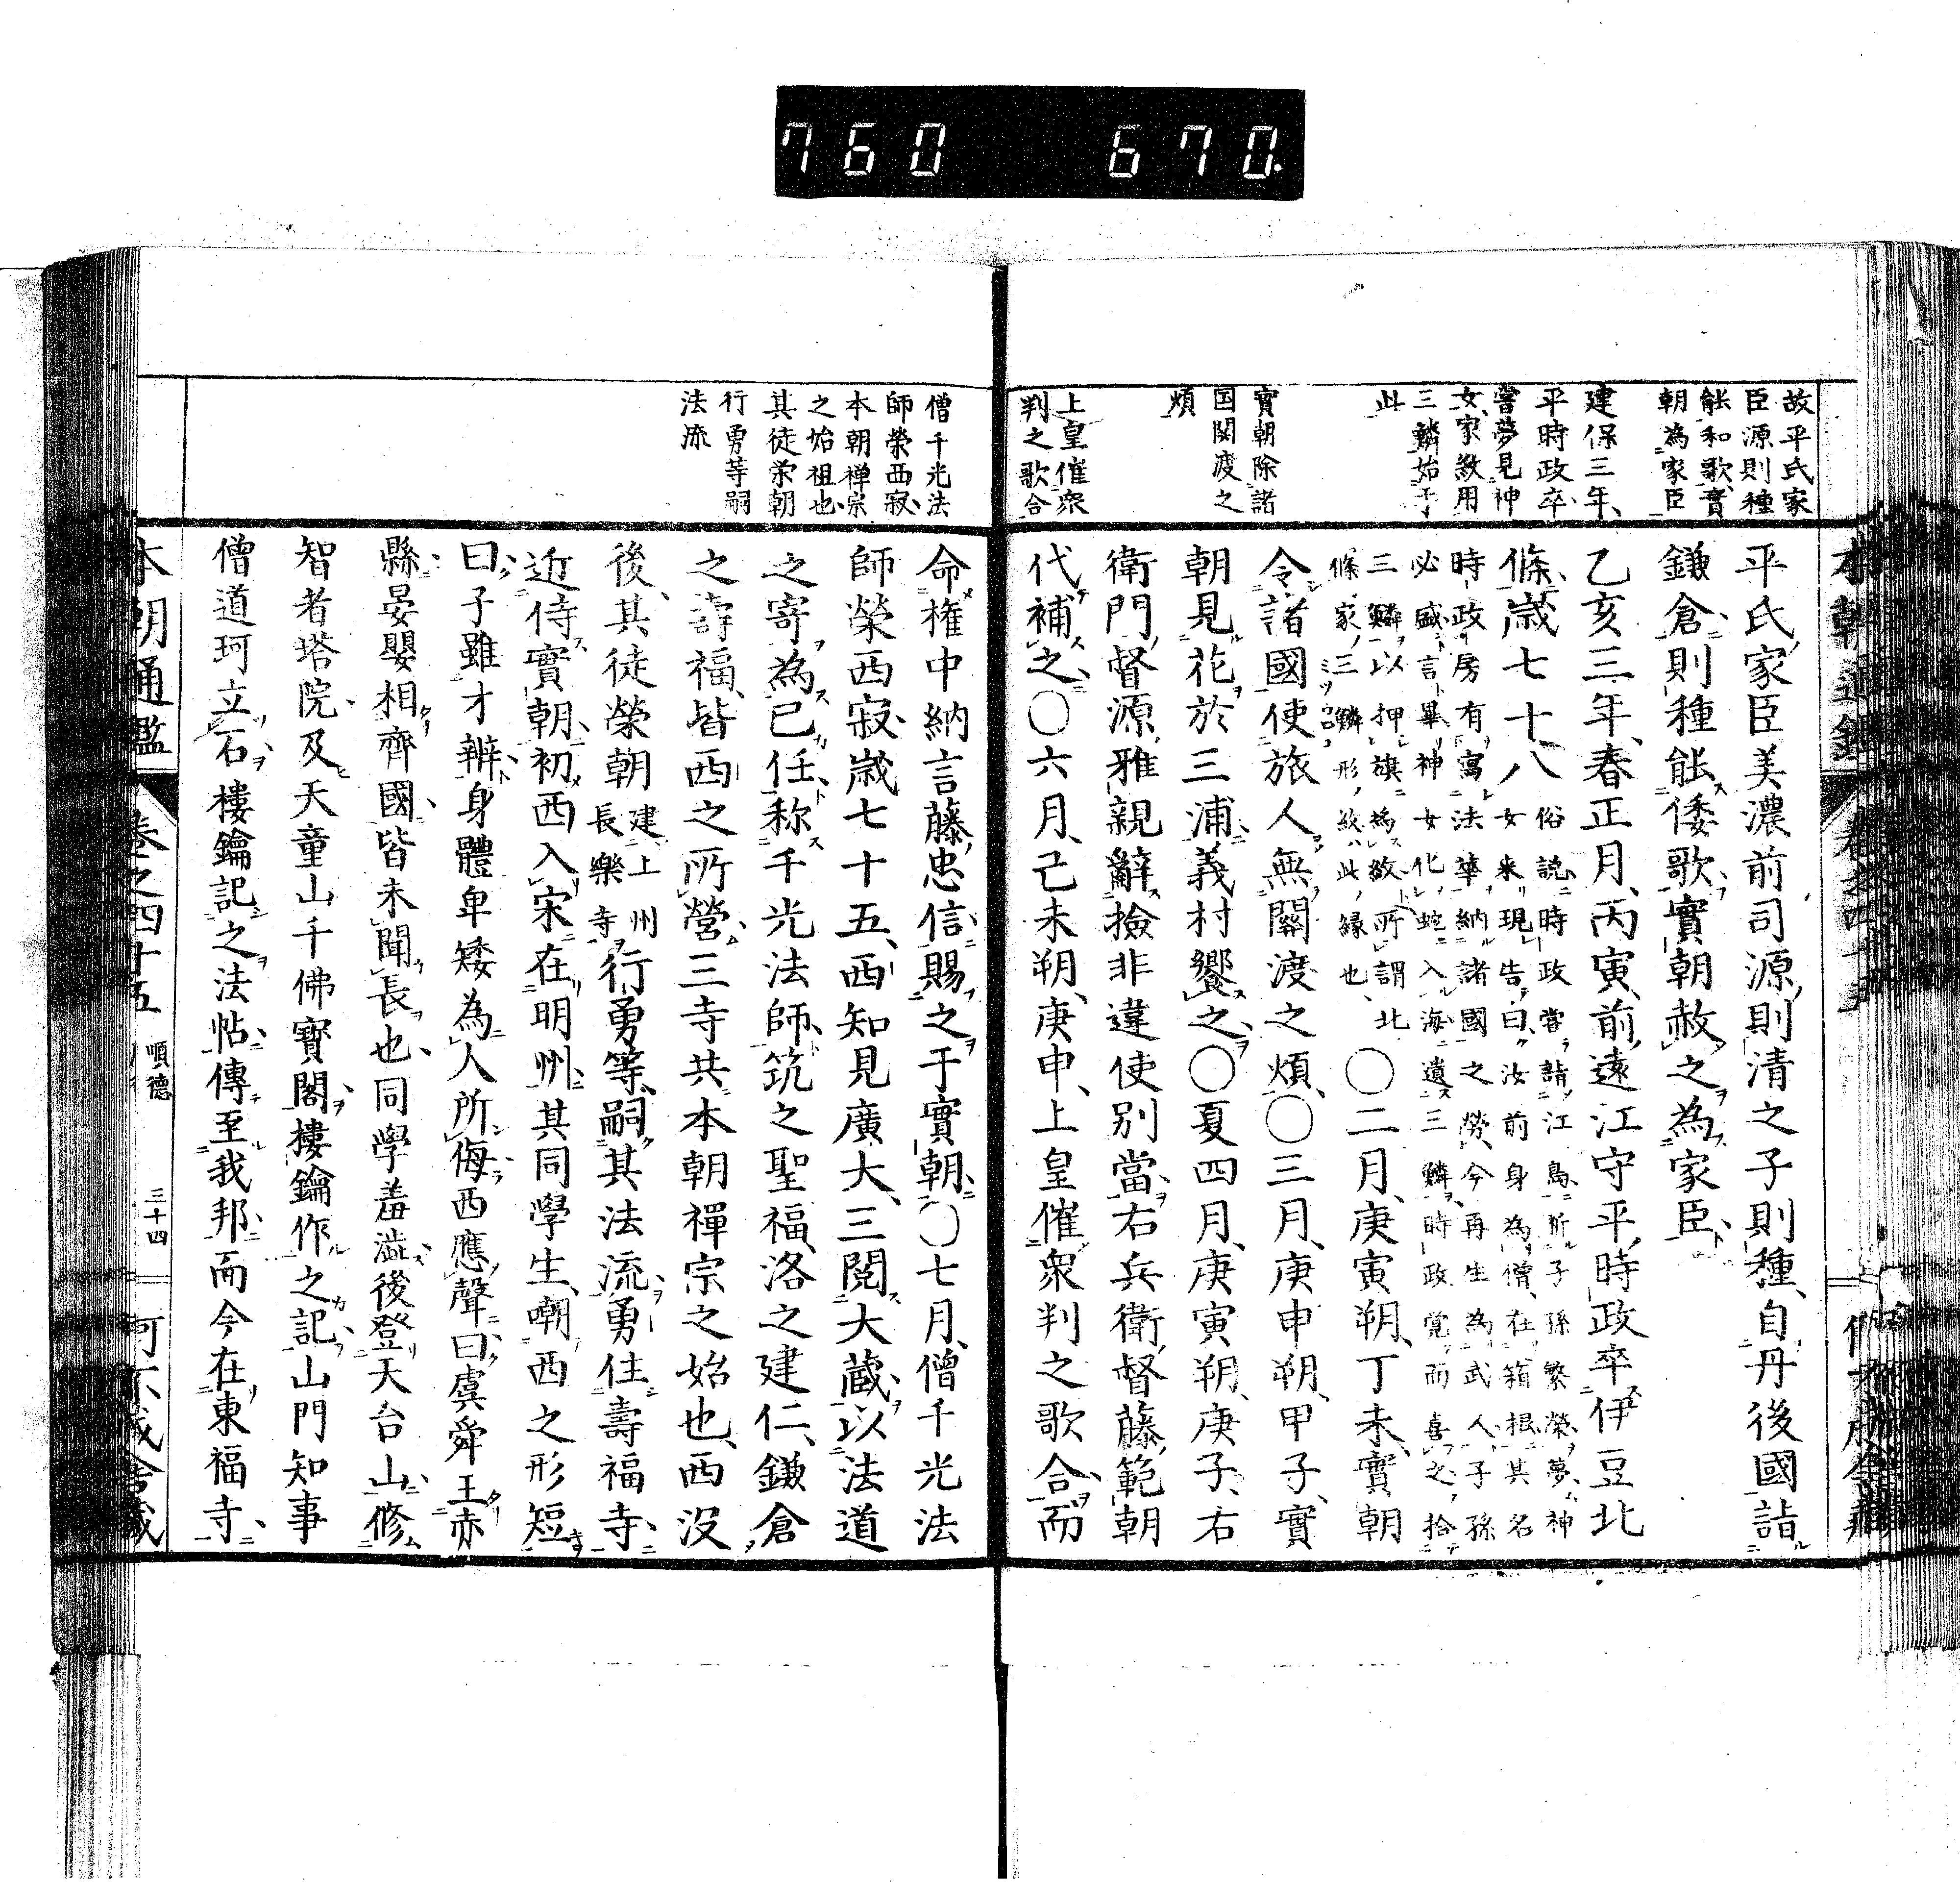 760 670.
故平氏家
臣源則種
能和歌實
朝為家臣
建保三年、
平時政卒、
嘗夢見神
女、家紋用
三鱗始于
此
實朝除諸
国関渡之
煩
上皇催衆
判之歌合
平氏家臣美濃前司源則清之子則種、自丹後國詣
鎌倉、則種能倭歌、實朝赦之為家臣、
乙亥三年、春正月、丙寅、前遠江守平時政卒伊豆北
條、歳七十八
俗説、時政嘗請江島、祈子孫繁榮、夢神
女来現告曰、汝前身為僧、在箱根、其名
時政房、有寫法華、納諸國之勞、今再生為武人、子孫
必盛、言畢神女化蛇入海、遺三鱗、時政覚而喜之、拾
三鱗以押旗為紋、所謂北
條家三鱗形紋、此縁也、
〇二月、庚寅朔、丁未、實朝
令諸國使旅人無關渡之煩、〇三月、庚申朔、甲子、實
朝見花於三浦、義村饗之、〇夏四月、庚寅朔、庚子、右
衛門督源雅親辭撿非違使別當、右兵衛督藤範朝
代補之、〇六月、己未朔、庚申、上皇催衆判之歌合、而
僧千光法
師榮西寂、
本朝禅宗
之始祖也、
其徒栄朝
行勇等嗣
法流
命權中納言藤忠信、賜之于實朝、〇七月、僧千光法
師榮西寂、歳七十五、西知見廣大、三閲大蔵、以法道
之寄為己任、称千光法師、筑之聖福、洛之建仁、鎌倉
之壽福、皆西之所營、三寺共本朝禪宗之始也、西没
後、其徒榮朝
建上州
長樂寺
行勇等、嗣其法流、勇住壽福寺、
近侍實朝、初西入宋、在明州、其同學生、嘲西之形短
曰、子雖才辨、身體卑矮為人所侮、西應聲曰、虞舜王赤
縣、晏嬰相齊國、皆未聞長也、同學羞澁、後登天台山、修
智者塔院、及天童山千佛寶閣、樓鑰作之記、山門知事
僧道珂立石、樓鑰記之法帖、傳至我邦、而今在東福寺、
本朝通鑑
卷之四十五
順德
三十四